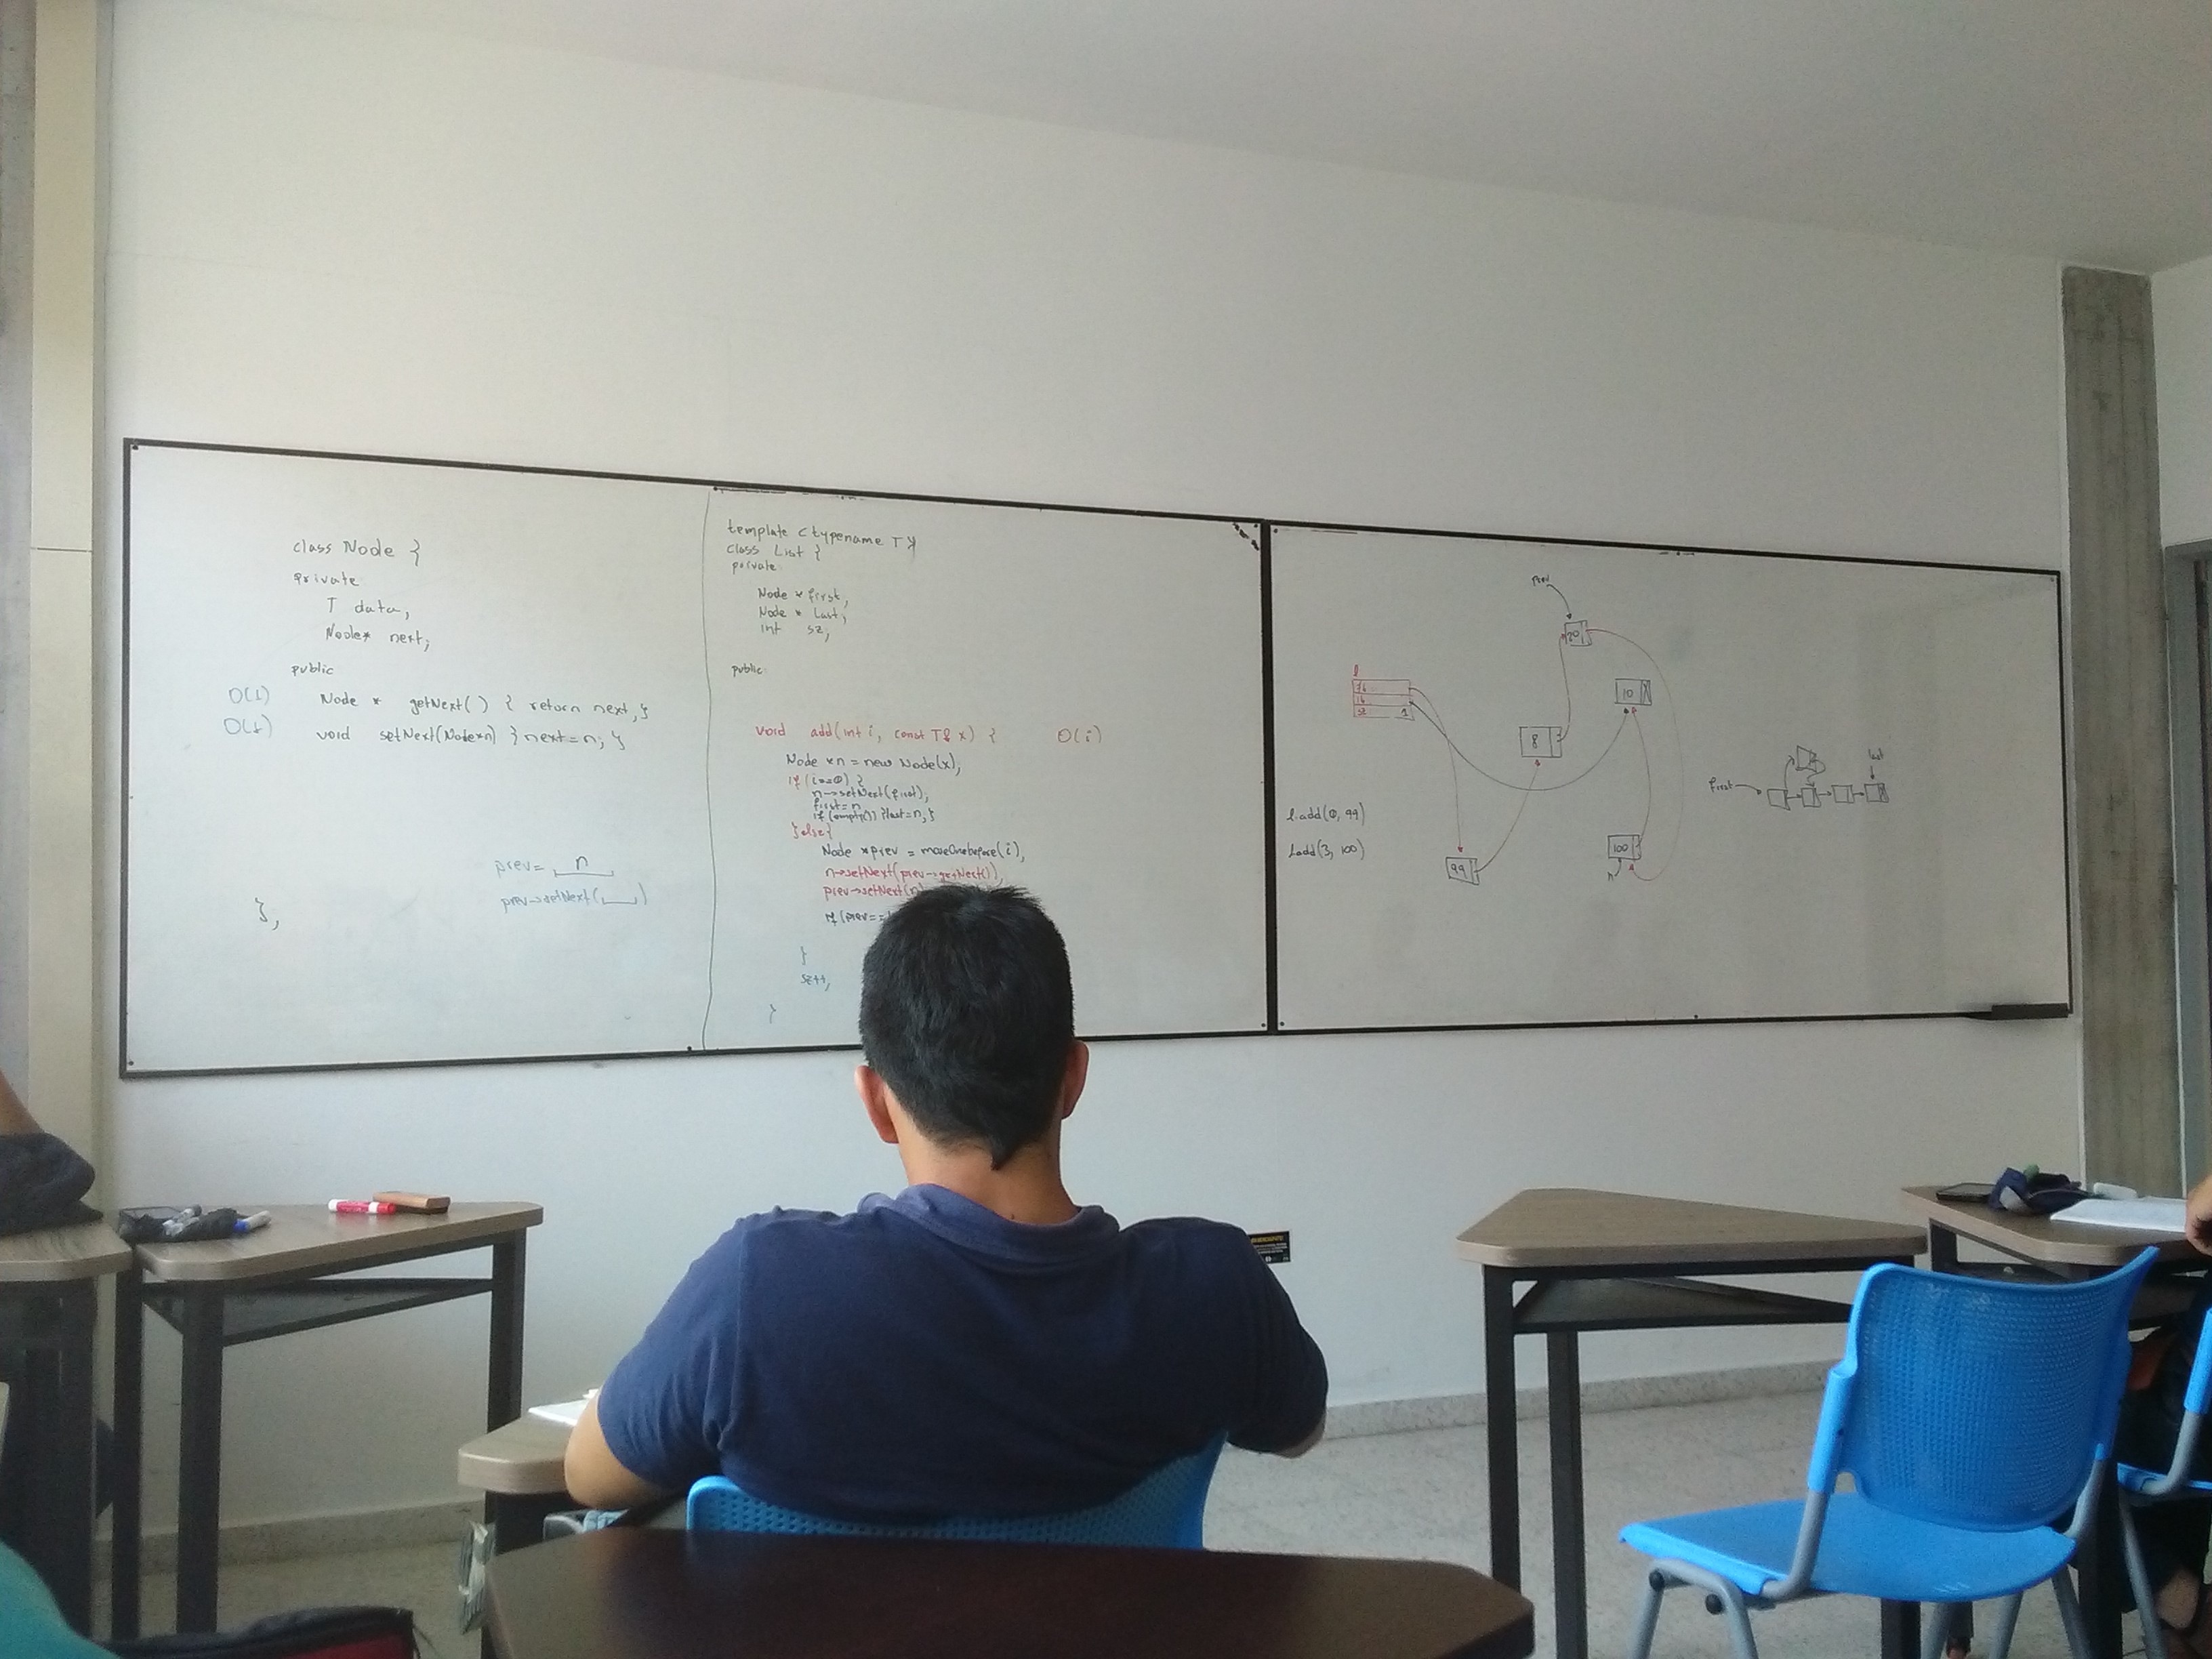 class Node {
private
T data,
Node* next;
public
O(1) Node * getNext() { return next, }
O(1) void setNext(Node*n) { next = n; }
prev = n
prev->setNext( )
},
template <typename T>
class List {
private
Node * first,
Node * Last;
int sz;
public:
void add(int i, const T& x) { O(i)
Node *n = new Node(x);
if (i==0) {
n->setNext(first);
first = n
if (empty()) {last = n; }
} else {
Node *prev = moveOnebefore(i);
n->setNext(prev->getNext());
prev->setNext(n)
if (prev ==
}
sz++;
}
prev
20
l
10
sz
8
l.add(0, 99)
l.add(3, 100)
99
100
n
first
last